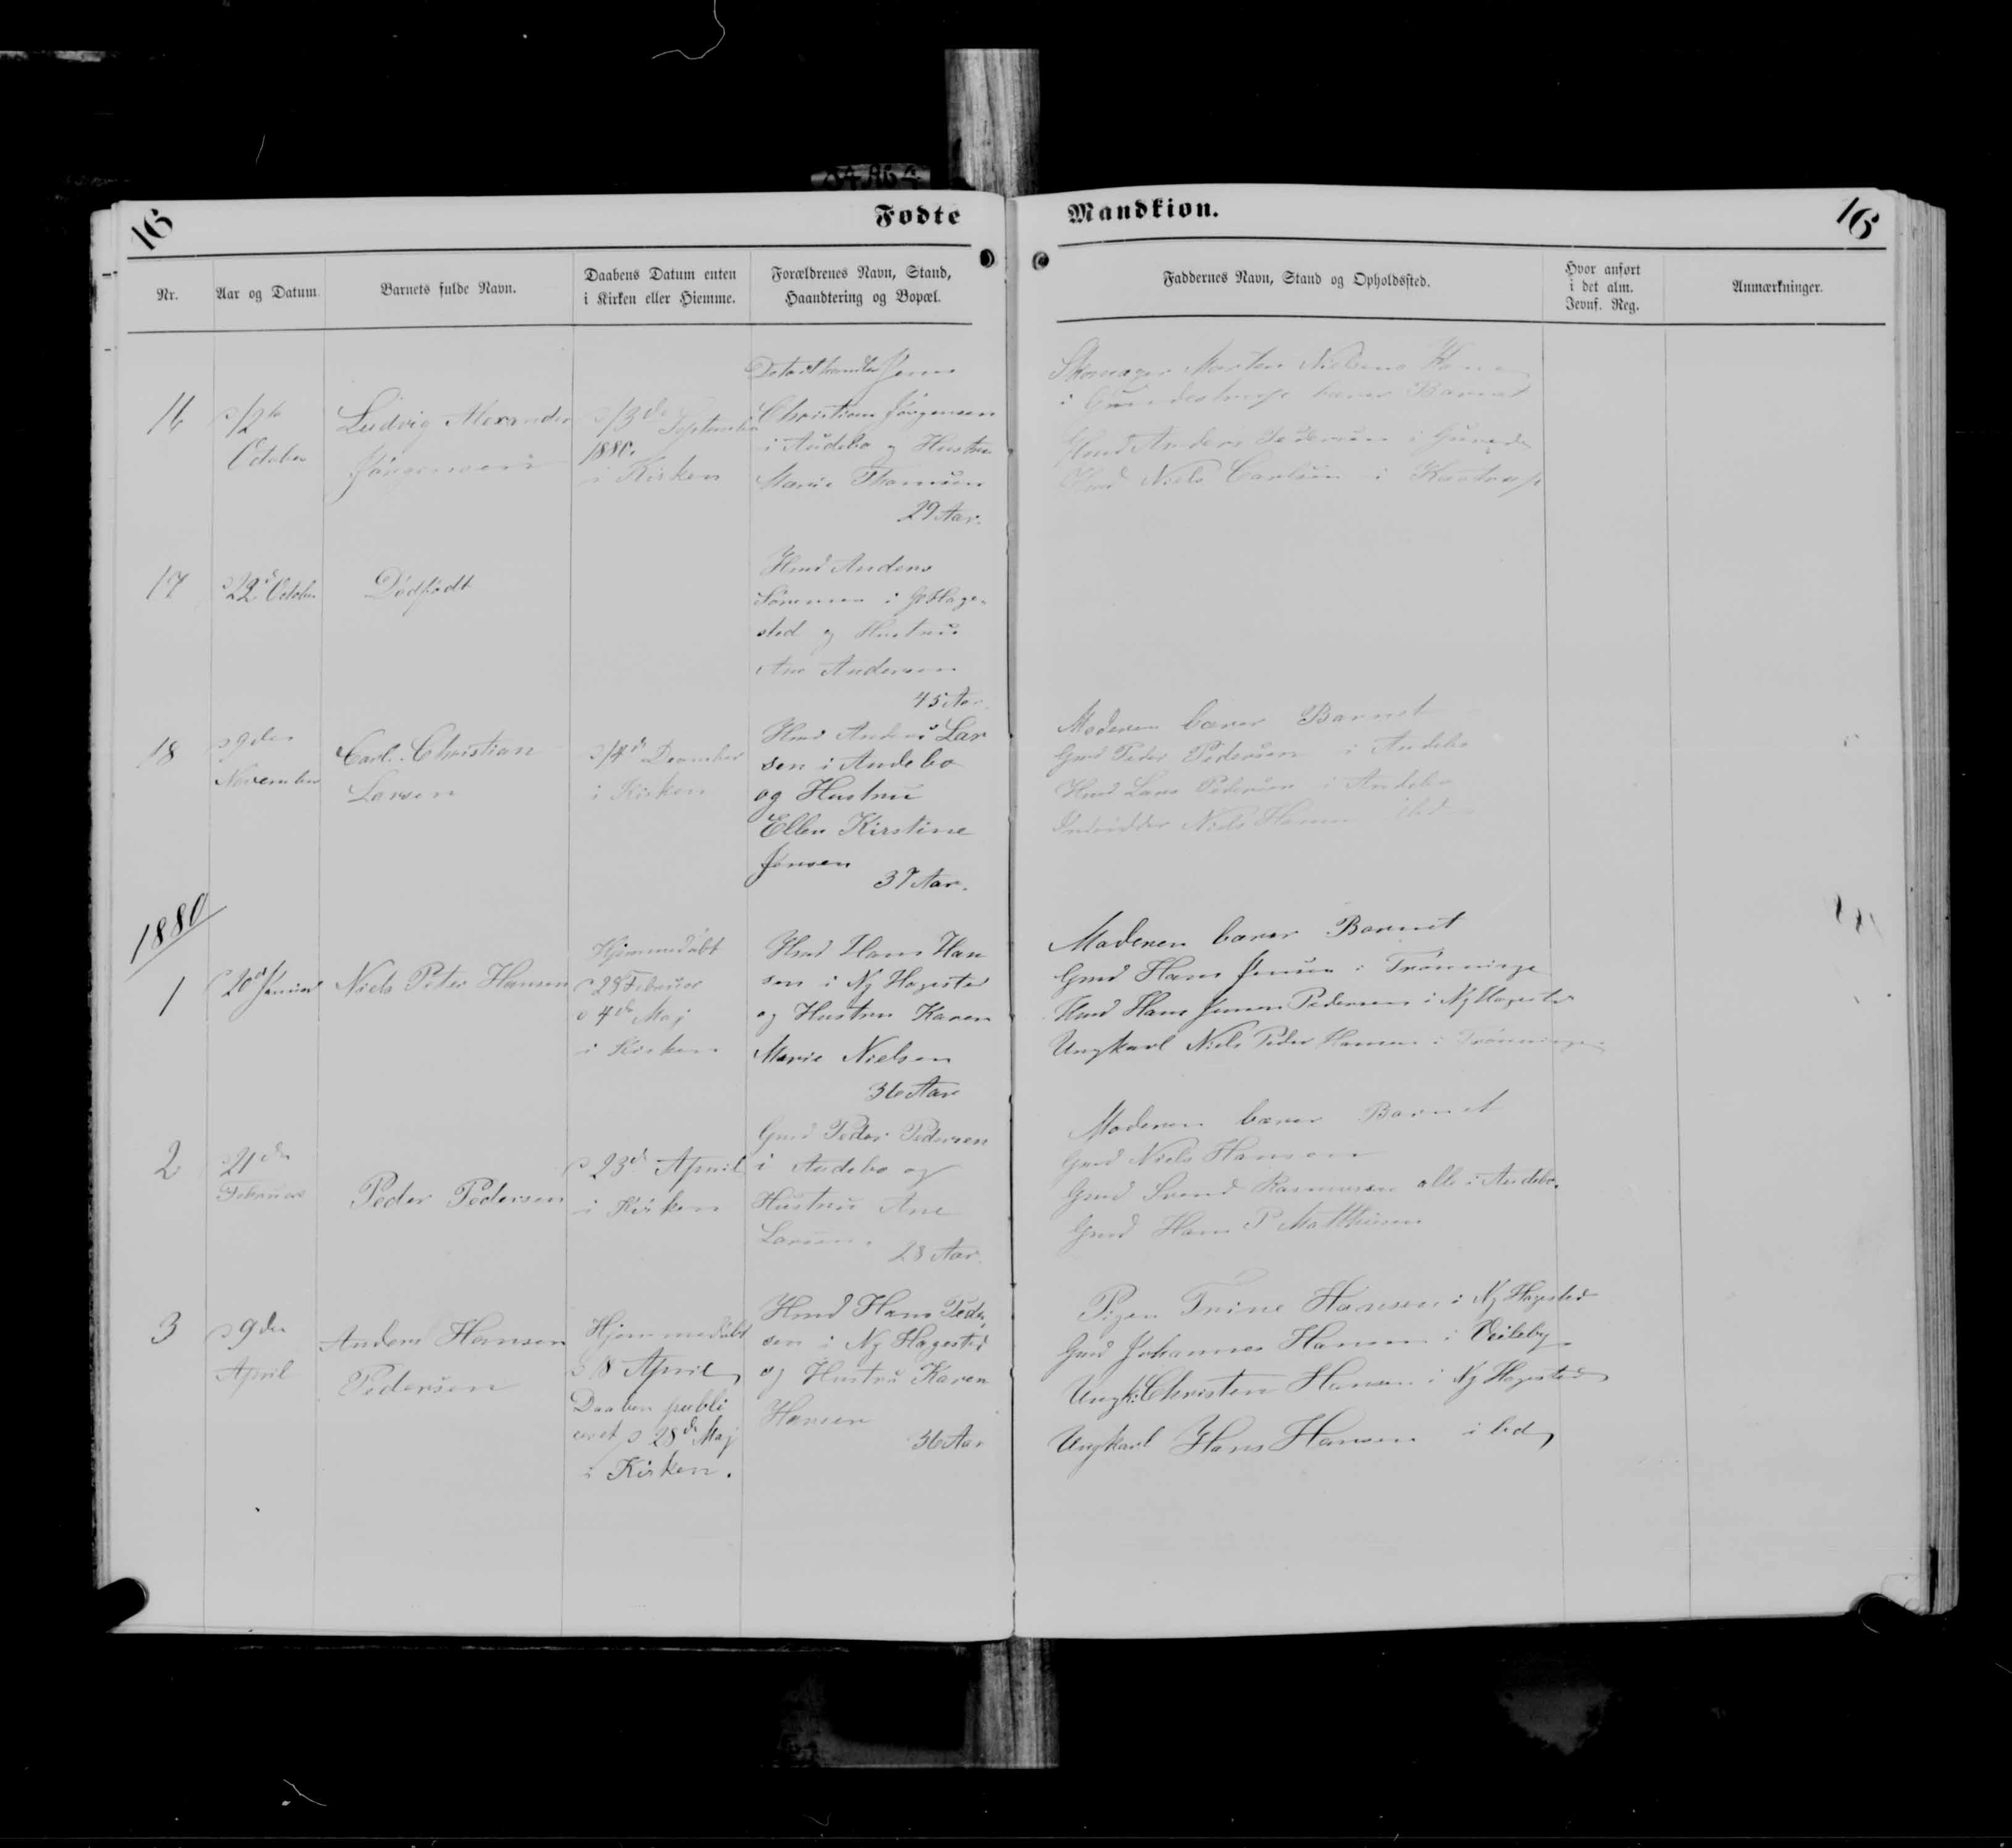 16
Fødte
Mandkiøn.
16
Nr.
Aar og Datum.
Barnets fulde Navn.
Daabens Datum enten
i Kirken eller Hiemme.
Forældrenes Navn, Stand,
Haandtering og Bopæl.
Faddernes Navn, Stand og Opholdssted.
Hvor anført
i det alm.
Jevnf. Reg.
Anmærkninger.
16
October
Ludvig Alexander
Jörgensen
September
1880.
i Kirken
Jens
Christian Jörgensen
i Audebo og Hustru
Marie Thomsen
29 Aar.
Skomager Morten Nielsens Kone
i bærer Barnet
Anders Pedersen i
Hmd Niels Carlsen i Kastrup
17
22 October
Dødfødt
Hmd Anders
Sörensen i Gl Hage-
sted og Hustru
Ane Andersen
45 Aar.
18
9den
November
Carl Christian
Larsen
December
i Kirken
Hmd Anders Lar
sen i Audebo
og Hustru
Ellen Kirstine
Jensen
37 Aar.
Moderen bærer Barnet
Gmd Peder Pedersen i Audebo
Hmd Lars Pedersen i Audebo
Niels Hansen ibd
1880
1
20 Januar
Niels Peter Hansen
Hjemmedøbt
Februar
4de Maj
i Kirken
Hmd Hans Han
sen i Ny Hagested
og Hustru Karen
Marie Nielsen
36 Aar
Moderen bærer Barnet
Gmd Hans Jensen i Trönninge
Hmd Hans Jensen Pedersen i Ny Hagested
Ungkarl Niels Peder Hansen i Trönninge
2
21den
Februar
Peder Pedersen
23d April
i Kirken
Gmd Peder Pedersen
i Audebo og
Hustru Ane
Larsen.
28 Aar.
Moderen bærer Barnet
Gmd Niels Hansen
Gmd Svend Rasmussen alle i Audebo.
Gmd Hans P Matthiesen
3
9den
April
Anders Hansen
Pedersen
Hjemmedøbt
18 April
Daaben publi
ceret p 28de Maj
i Kirken.
Hmd Hans Peder
sen i Ny Hagested
og Hustru Karen
Hansen
36 Aar
Pigen Trine Hansen i Ny Hagested
Gmd Johannes Hansen i Veileby
Ungk: Christen Hansen i Ny Hagested
Ungkarl Hans Hansen ibd